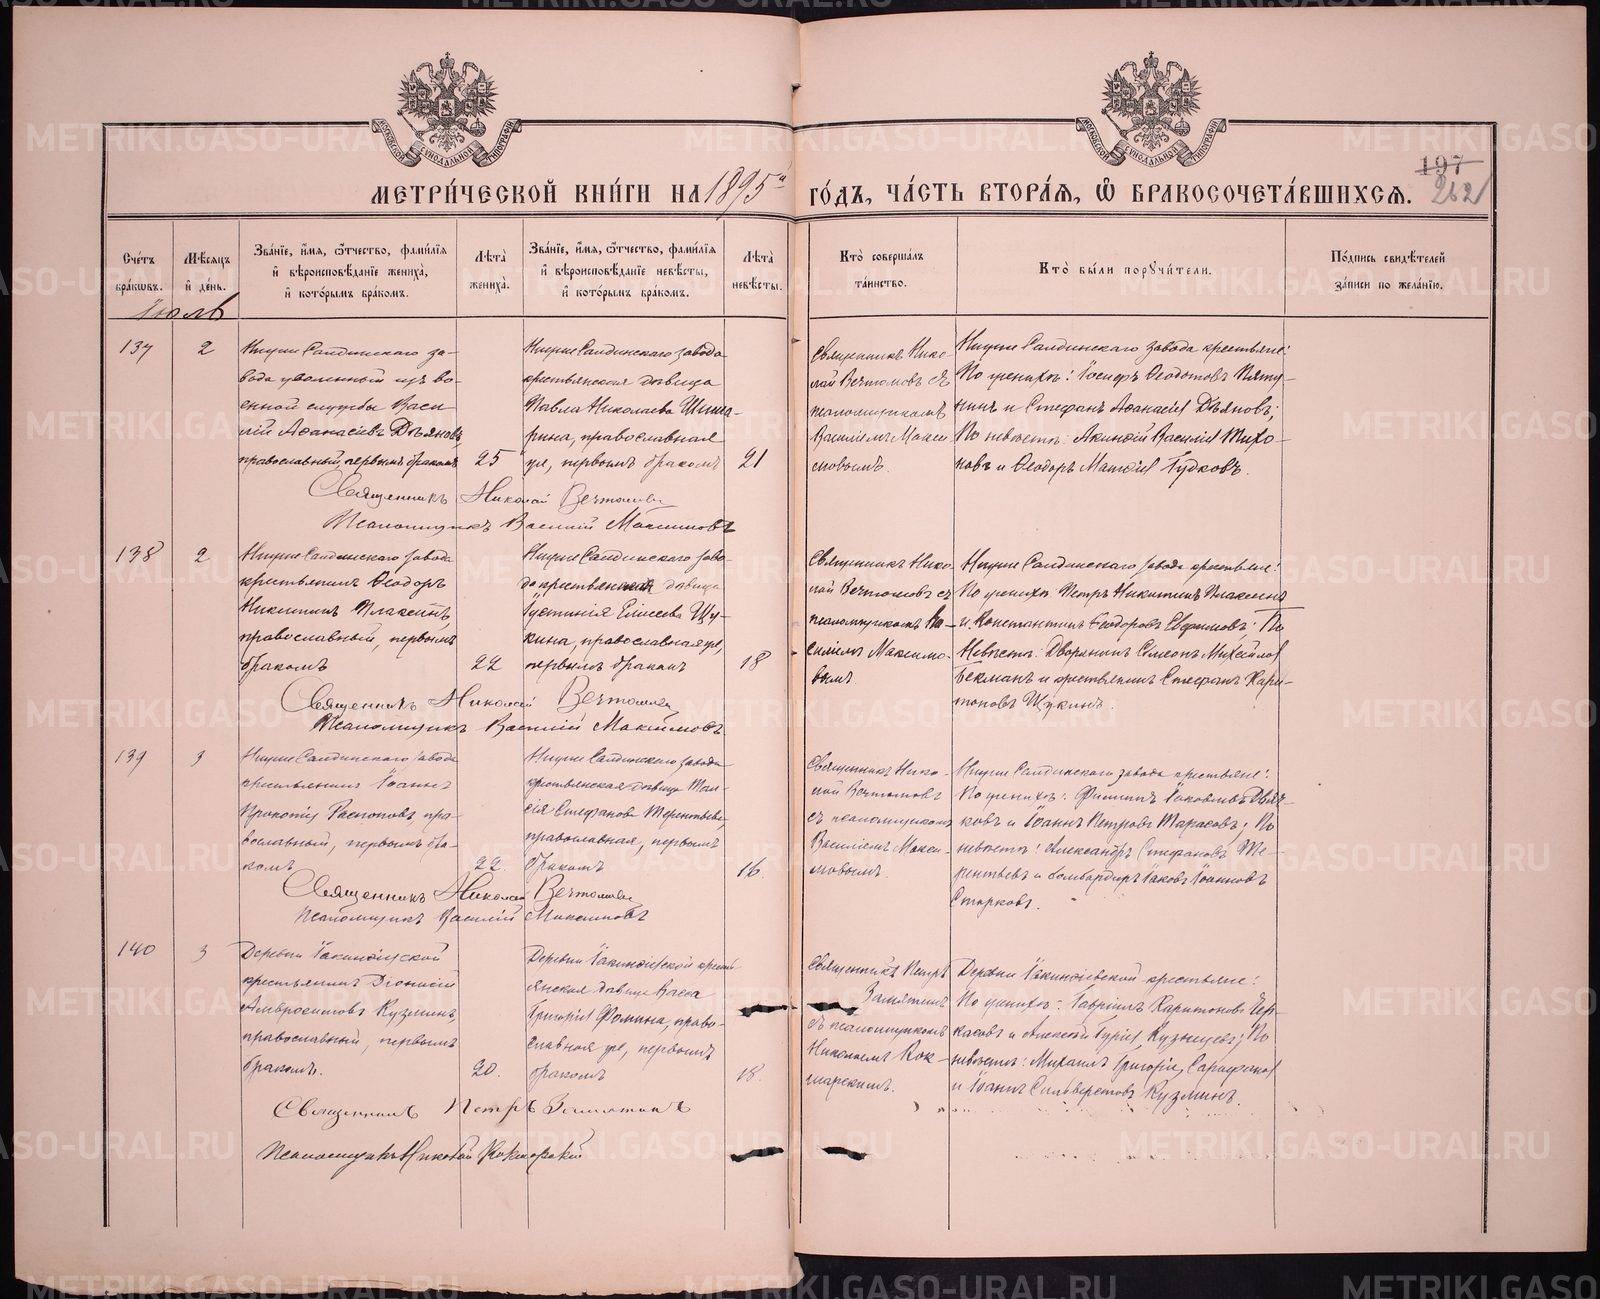 МОСКОВСКОЙ СУНОДАЛЬНОЙ ТИПОГРАФІИ
МОСКОВСКОЙ СУНОДАЛЬНОЙ ТИПОГРАФІИ
МЕТРИ́ЧЕСКОЙ КНИ́ГИ НА 1895й ГО́ДЪ, ЧА́СТЬ ВТОРА́Я, Ѡ БРАКОСОЧЕТА́ВШИХСЯ.
197
262
Сче́тъ бра́кѡвъ.
Мѣ́сяцъ и҆ де́нь.
Зва́нїе, и҆́мя, ѻ҆́тчество, фами́лїя
и҆ вѣроисповѣ́данїе жениха̀,
и҆ кото́рымъ бра́комъ.
Лѣта̀ жениха̀.
Зва́нїе, и҆́мя, ѻ҆́тчество, фами́лїя
и҆ вѣроисповѣ́данїе невѣ́сты,
и҆ кото́рымъ бра́комъ.
Лѣта̀ невѣ́сты.
Кто̀ соверша́лъ та́инство.
Кто̀ бы́ли порꙋчи́тели.
По́дпись свидѣ́телей за́писи по жела́нїю.
Июль
137
2
Нижне Салдинскаго за-
вода уволенный изъ во-
енной службы Васи
лій Аѳанасіевъ Дѣяновъ
православный, первымъ бракомъ
25
Нижне Салдинскаго завода
крестьянская дѣвица
Павла Николаева
православная
же, первымъ бракомъ
21
Священникъ Нико
лай Вечтомовъ съ
псаломщикомъ
Василіемъ Макси
мовымъ.
Нижне Салдинскаго завода крестьяне:
По женихѣ: Іосифъ Ѳеодотовъ Пяту-
нинъ и Стефанъ Аѳанасіевъ Дѣяновъ;
По невѣстѣ: Акиндій Василіевъ Тихо-
новъ и Ѳеодоръ Матѳіевъ Гудковъ.
Священникъ Николай Вечтомовъ
Псаломщикъ Василій Максимовъ
138
2
Нижне Салдинскаго завода
крестьянинъ Ѳеодоръ
Никитинъ Плаксинъ,
православный, первымъ
бракомъ
22
Нижне Салдинскаго заво-
да крестьянская дѣвица
Іустинія Елисеева Щу-
кина, православная же,
первымъ бракомъ
18
Священникъ Нико
лай Вечтомовъ съ
псаломщикомъ Ва-
силіемъ Максимо-
вымъ
Нижне Салдинскаго завода крестьяне:
По женихѣ Петръ Никитинъ Плаксинъ
и Константинъ Ѳеодоровъ Евфимовъ; По
Невѣстѣ: Дворянинъ Симеонъ Михайловъ
Бекманъ и крестьянинъ Стефанъ Хари-
тоновъ Щукинъ.
Священникъ Николай Вечтомовъ
Псаломщикъ Василій Максимовъ
139
3
Нижне Салдинскаго завода
крестьянинъ Іоаннъ
Прокопіевъ Распоповъ, пра-
вославный, первымъ бра-
комъ
22
Нижне Салдинскаго завода
крестьянская дѣвица Таи-
сія Стефанова Терентьева,
православная, первымъ
бракомъ
16
Священникъ Нико-
лай Вечтомовъ
съ псаломщикомъ
Василіемъ Макси-
мовымъ.
Нижне Салдинскаго завода крестьяне:
По женихѣ: Филиппъ Іаковлевъ Двяч-
ковъ и Іоаннъ Петровъ Тарасовъ; По
невѣстѣ: Александръ Стефановъ Те-
рентьевъ и бомбардиръ Іаковъ Іоанновъ
Старковъ.
Священникъ Николай Вечтомовъ
Псаломщикъ Василій Максимовъ
140
3
Деревни Іакинѳіевской
крестьянинъ Діонисій
Амвросіевъ Кузминъ,
православный, первымъ
бракомъ.
20.
Деревни Іакинѳіевской кресть
янская дѣвица Васса
Григоріева Фомина, право-
славная же, первымъ
бракомъ
18.
Священникъ Петръ
Замятинъ
съ псаломщикомъ
Николаемъ Кок-
шарскимъ.
Деревни Іакинѳіевской крестьяне:
По женихѣ: Гавріилъ Харитоновъ Чер-
касовъ и Алексій Гуріевъ Кузнецовъ; По
невѣстѣ: Михаилъ Григоріевъ Сарафановъ
и Іоаннъ Сильвестровъ Кузминъ.
Священникъ Петръ Замятинъ
Псаломщикъ Николай Кокшарскій
METRIKI.GASO-URAL.RU